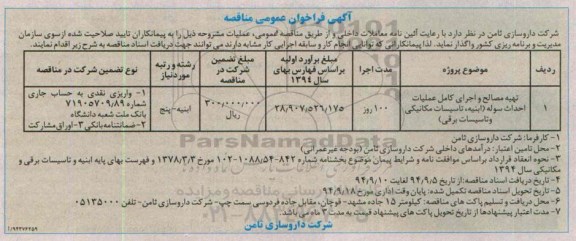 آگهی فراخوان عمومی مناقصه
شرکت داروسازی ثامن در نظر دارد با رعایت آئین نامه معاملات داخلی و از طریق مناقصه عمومی، عملیات مشروحه ذیل را به پیمانکاران تایید صلاحیت شده ازسوی سازمان
مدیریت و برنامه ریزی کشور واگذار نماید. لذا پیمانکارانی که توانایی انجام کار و سابقه اجرایی کار مشابه دارند می توانند جهت دریافت اسناد مناقصه به شرح زیر اقدام نمایند.
ردیف
موضوع پروژه
مدت اجرا
مبلغ برآورد اولیه براساس فهارس بهای سال ۱۳۹٤
مبلغ تضمین شرکت در مناقصه
رشته و رتبه موردنیاز
نوع تضمین شرکت در مناقصه
۱
تهیه مصالح و اجرای کامل عملیات احداث سوله (ابنیه، تاسیسات مکانیکی وتاسیسات برقی)
۱۰۰ روز
۳۸/۹۰۷/۵۲۶/۱۷۵
۳۰۰/۰۰۰/۰۰۰ ریال
ابنیه-پنج
۱- واریزی نقدی به حساب جاری شماره ۷۱۹۰۵۷۰۹/۸۹ بانک ملت شعبه دانشگاه
۲-ضمانتنامه بانکی ۳-اوراق مشارکت
۱- کارفرما: شرکت داروسازی ثامن
۲- محل تامین اعتبار: درآمدهای داخلی شرکت داروسازی ثامن (بودجه غیرعمرانی)
۳- نحوه انعقاد قرارداد براساس موافقت نامه و شرایط پیمان موضوع بخشنامه شماره ۸۴۲-۵۴/۱۰۸۸-۱۰۲ مورخ ۱۳۷۸/۳/۳ و فهرست بهای پایه ابنیه و تاسیسات برقی و
مکانیکی سال ۱۳۹۴
۴- تاریخ دریافت اسناد مناقصه: از تاریخ ۹۴/۹/۵ لغایت ۹۴/۹/۱۰
۵- تاریخ تحویل اسناد مناقصه تکمیل شده: پایان وقت اداری مورخ ۹۴/۹/۱۸
۶- محل دریافت و تسلیم پاکت های مناقصه: کیلومتر ۱۵ جاده مشهد- قوچان، مقابل جاده فردوسی سمت چپ- شرکت داروسازی ثامن- تلفن ۰۵۱۳۵۰۰۰
۷- مدت اعتبار پیشنهادها از تاریخ تحویل پاکت های پیشنهاد قیمت به مدت ۳ ماه می باشد.
شرکت داروسازی ثامن
ParsNamadData